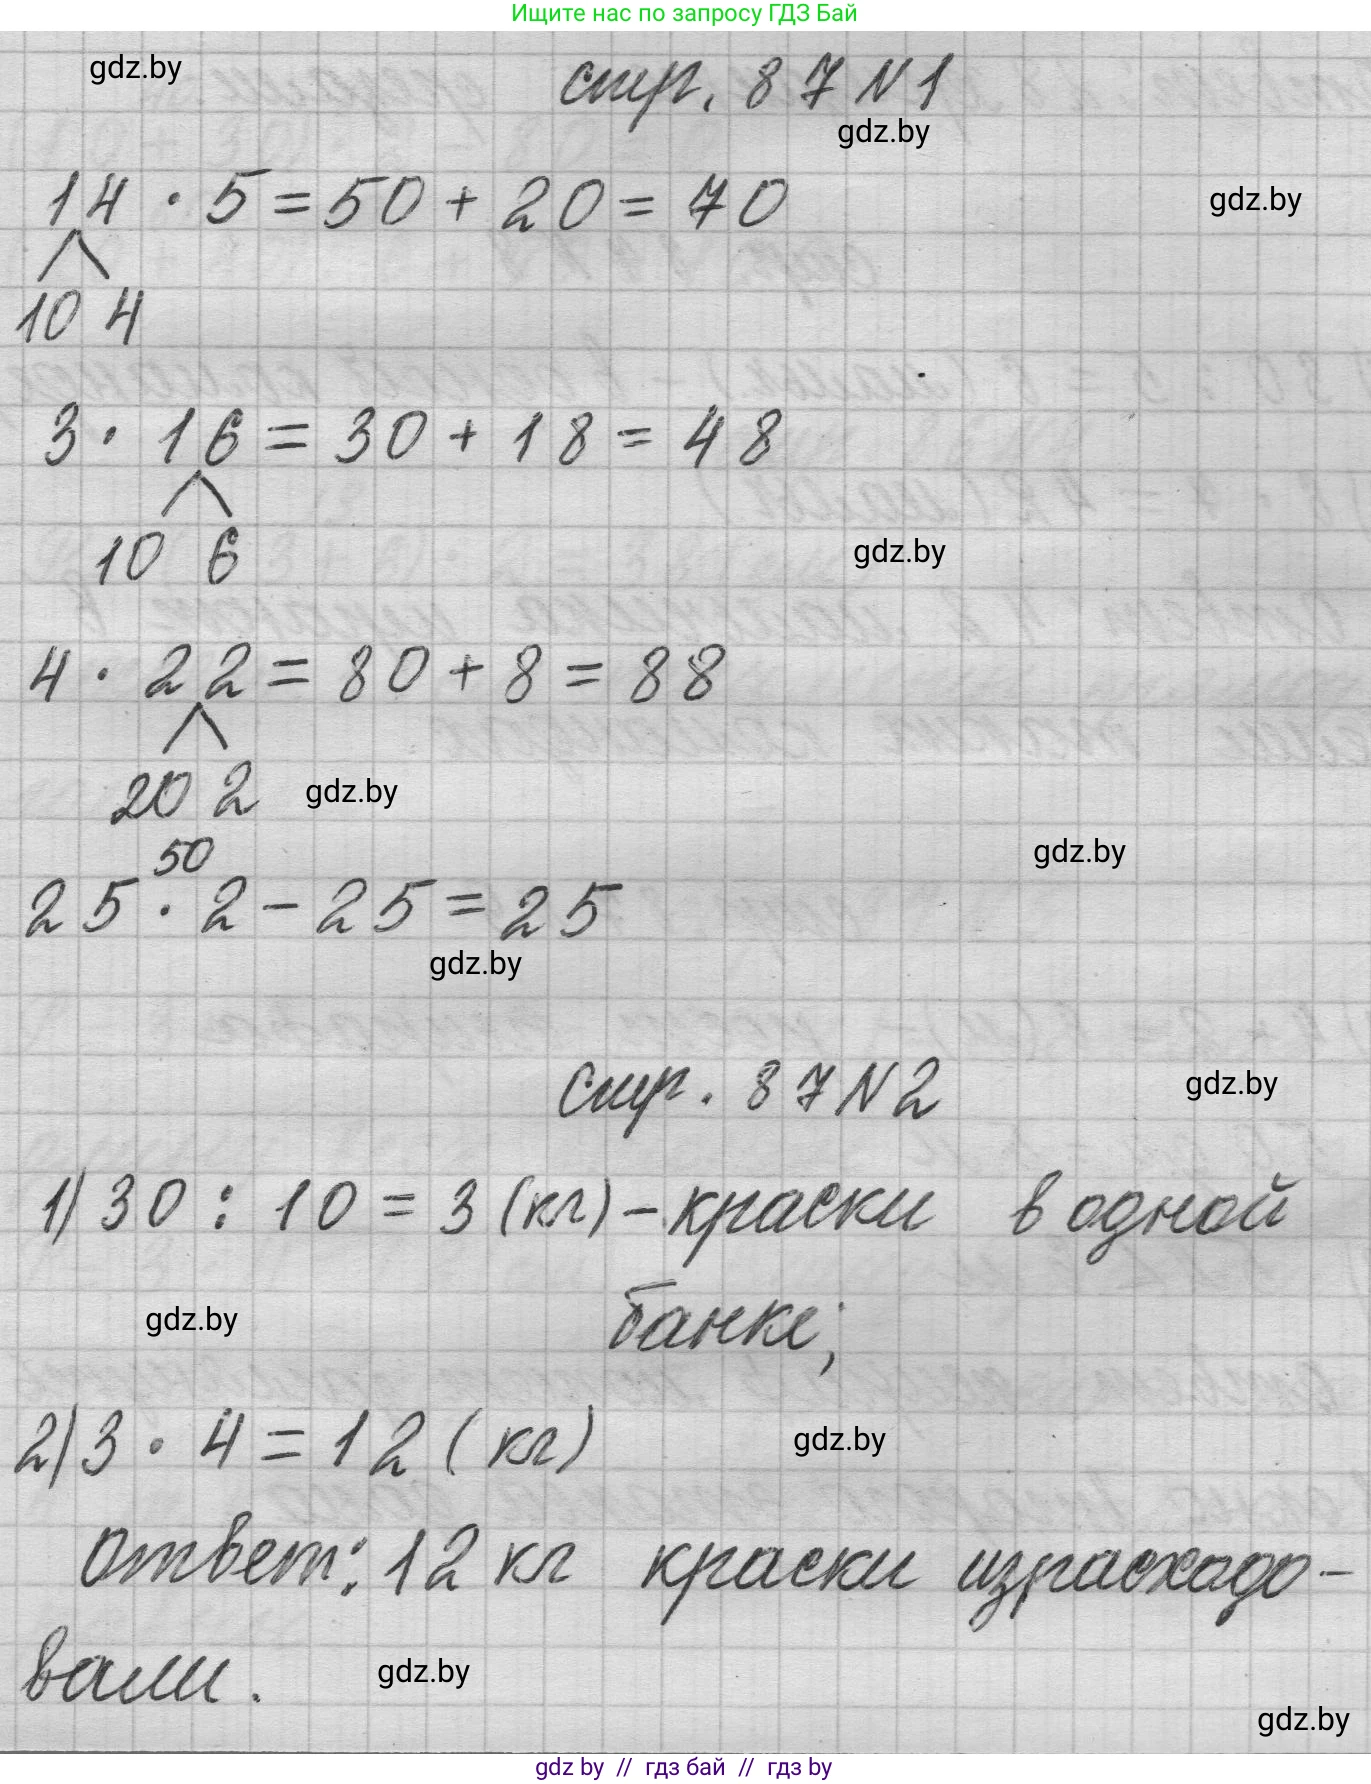 Ищите нас по запросу ГДЗ Бай
gdz.by
стр. 87 N 1
gdz.by
14 · 5 = 50 + 20 = 70
gdz.by
10 4
3 · 16 = 30 + 18 = 48
10 6
gdz.by
4 · 22 = 80 + 8 = 88
20 2
gdz.by
50
gdz.by
25 · 2 - 25 = 25
gdz.by
стр. 87 N 2
gdz.by
1) 30 : 10 = 3 (кг) - краски в одной
банке;
gdz.by
2) 3 · 4 = 12 (кг)
gdz.by
ответ: 12 кг краски израсходо-
вали.
gdz.by
gdz.by
gdz by // гдз бай // гдз by